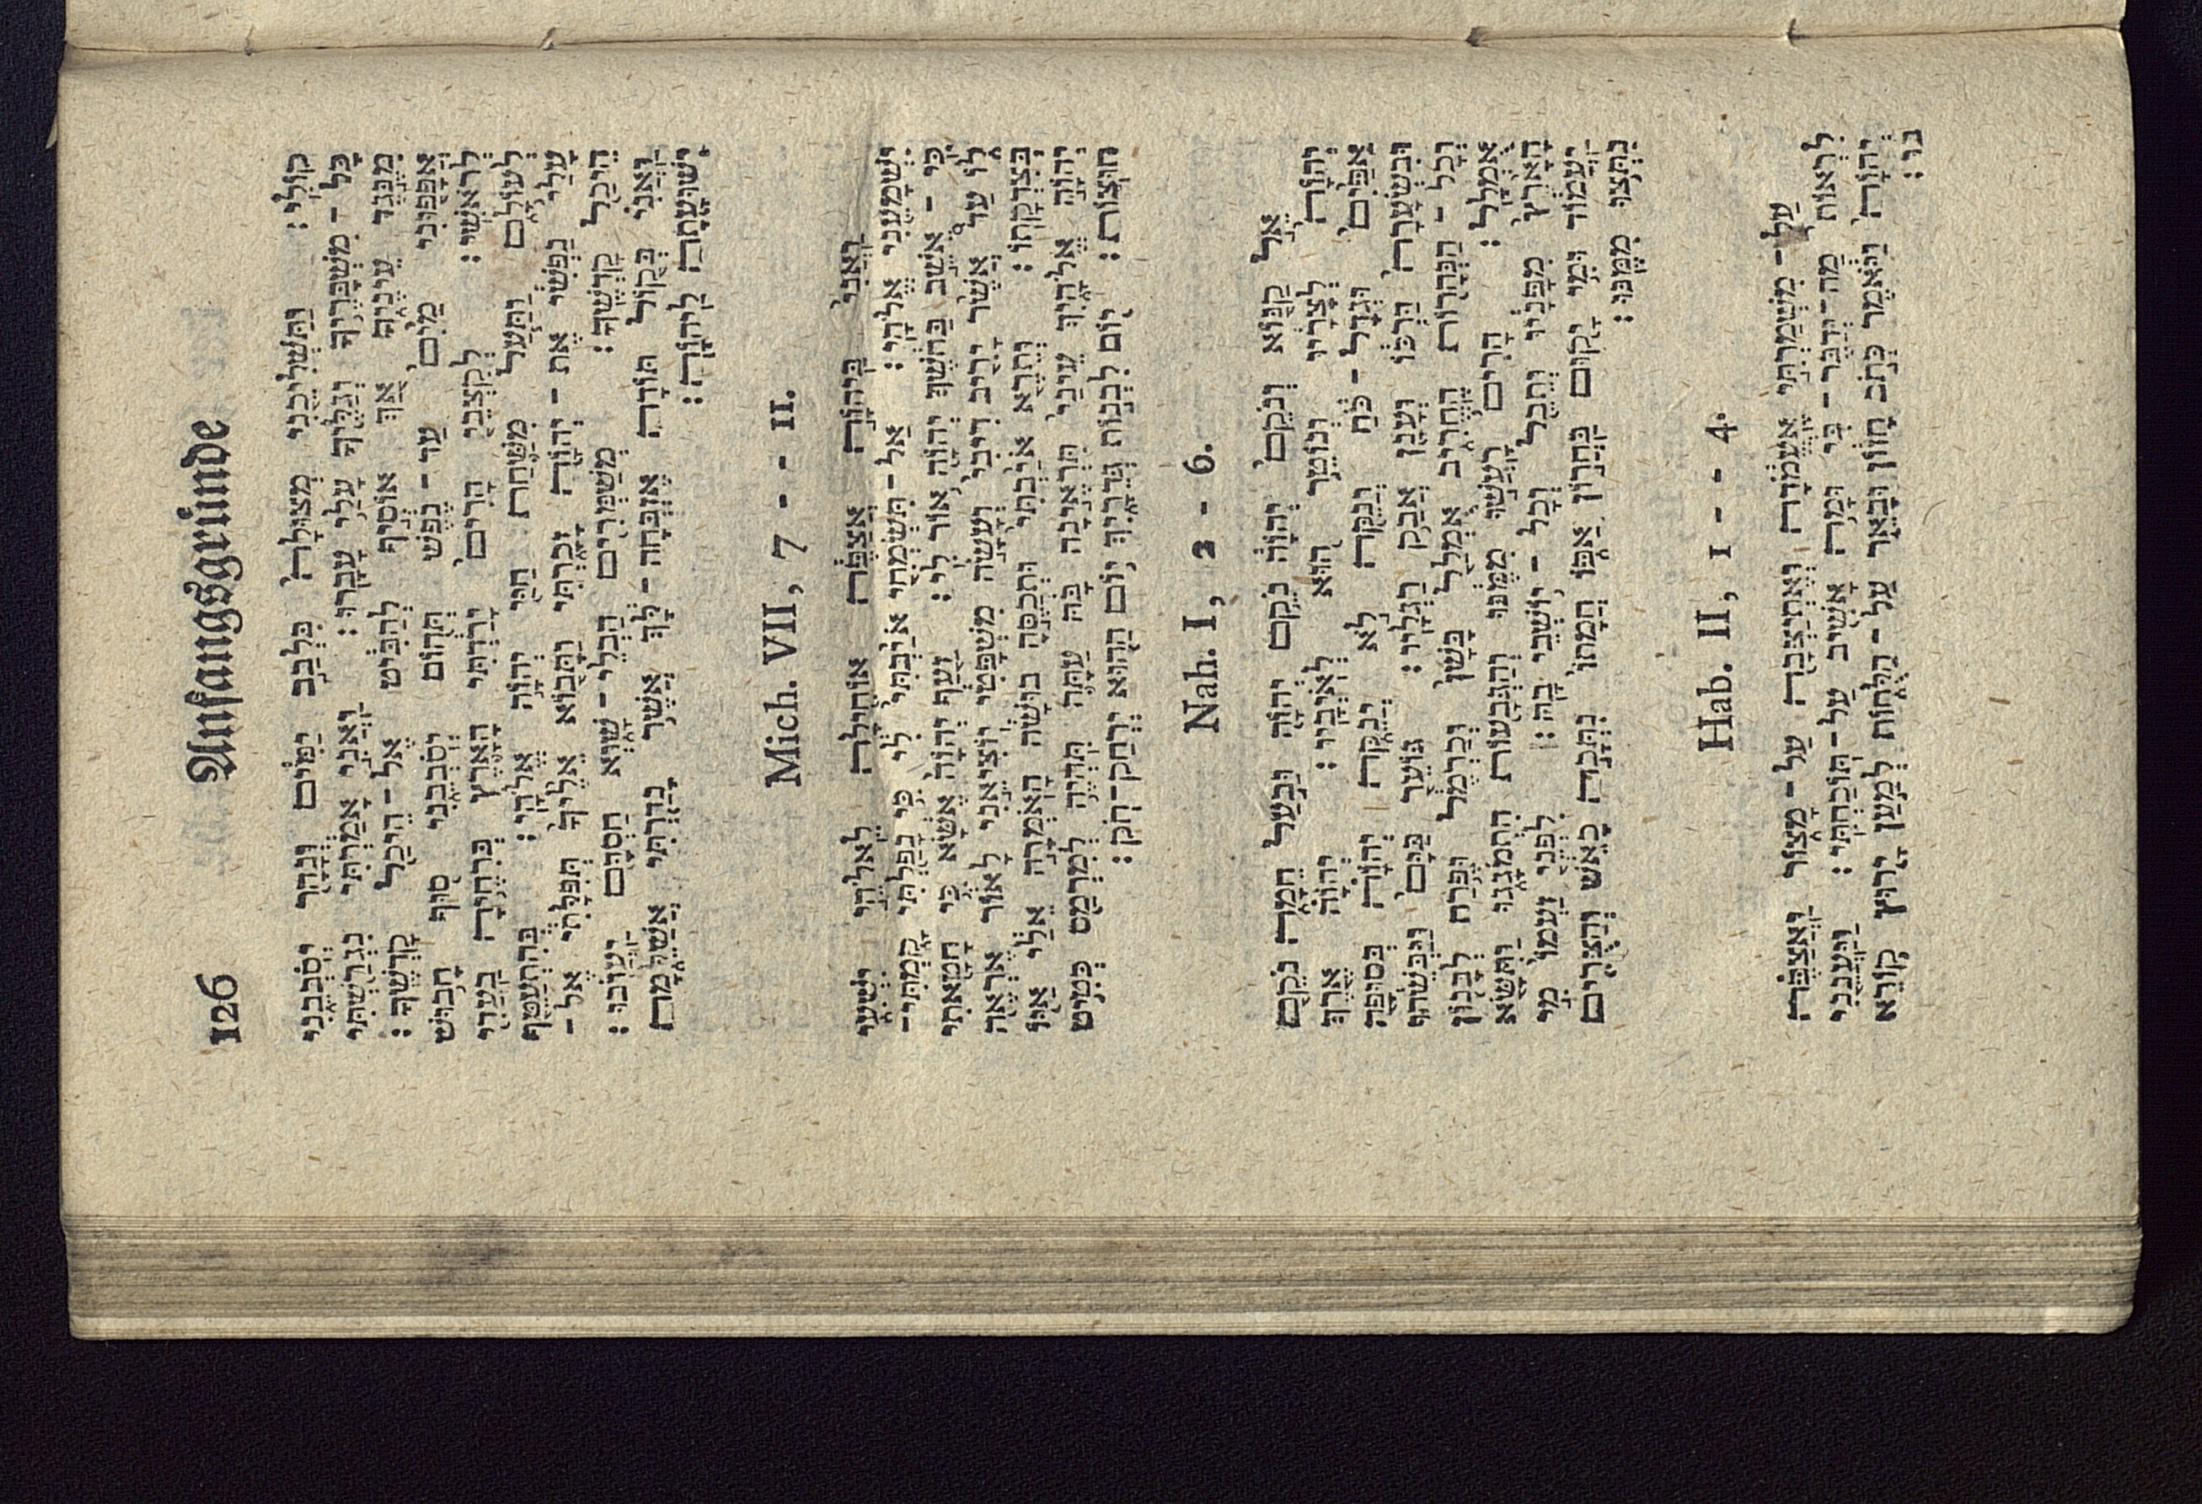 126 Anfangsgründe
קוֹלִי: וַתַּשְׁלִיכֵנִי מְצוּלָה בִּלְבַב יַמִּים וְנָהָר יְסֹבְבֵנִי
כָּל-מִשְׁבָּרֶיךָ וְגַלֶּיךָ עָלַי עָבָרוּ: וַאֲנִי אָמַרְתִּי נִגְרַשְׁתִּי
מִנֶּגֶד עֵינֶיךָ אַךְ אוֹסִיף לְהַבִּיט אֶל-הֵיכַל קָדְשֶׁךָ:
אֲפָפוּנִי מַיִם עַד-נֶפֶשׁ תְּהוֹם יְסֹבְבֵנִי סוּף חָבוּשׁ
לְרֹאשִׁי: לְקִצְבֵי הָרִים יָרַדְתִּי הָאָרֶץ בְּרִחֶיהָ בַעֲדִי
לְעוֹלָם וַתַּעַל מִשַּׁחַת חַיַּי יְהוָה אֱלֹהָי: בְּהִתְעַטֵּף
עָלַי נַפְשִׁי אֶת-יְהוָה זָכָרְתִּי וַתָּבוֹא אֵלֶיךָ תְּפִלָּתִי אֶל-
הֵיכַל קָדְשֶׁךָ: מְשַׁמְּרִים הַבְלֵי-שָׁוְא חַסְדָּם יַעֲזֹבוּ:
וַאֲנִי בְּקוֹל תּוֹדָה אֶזְבְּחָה-לָּךְ אֲשֶׁר נָדַרְתִּי אֲשַׁלֵּמָה
יְשׁוּעָתָה לַיהוָה:
Mich. VII, 7 - - 11.
וַאֲנִי בַּיהוָה אֲצַפֶּה אוֹחִילָה לֵאלֹהֵי יִשְׁעִי
יִשְׁמָעֵנִי אֱלֹהָי: אַל-תִּשְׂמְחִי אֹיַבְתִּי לִי כִּי נָפַלְתִּי קָמְתִּי-
כִּי-אֵשֵׁב בַּחֹשֶׁךְ יְהוָה אוֹר לִי: זַעַף יְהוָה אֶשָּׂא כִּי חָטָאתִי
לוֹ עַד אֲשֶׁר יָרִיב רִיבִי וְעָשָׂה מִשְׁפָּטִי יוֹצִיאֵנִי לָאוֹר אֶרְאֶה
בְּצִדְקָתוֹ: וְתֵרֶא אֹיַבְתִּי וּתְכַסֶּהָ בוּשָׁה הָאֹמְרָה אֵלַי אַיּוֹ
יְהוָה אֱלֹהָיִךְ עֵינַי תִּרְאֶינָה בָּהּ עַתָּה תִּהְיֶה לְמִרְמָס כְּטִיט
חוּצוֹת: יוֹם לִבְנוֹת גְּדֵרָיִךְ יוֹם הַהוּא יִרְחַק-חֹק:
Nah. I, 2 - 6.
אֵל קַנּוֹא וְנֹקֵם יְהוָה נֹקֵם יְהוָה וּבַעַל חֵמָה נֹקֵם
יְהוָה לְצָרָיו וְנוֹטֵר הוּא לְאֹיְבָיו: יְהוָה אֶרֶךְ
אַפַּיִם וּגְדָל-כֹּחַ וְנַקֵּה לֹא יְנַקֶּה יְהוָה בְּסוּפָה
וּבִשְׂעָרָה דַּרְכּוֹ וְעָנָן אֲבַק רַגְלָיו: גּוֹעֵר בַּיָּם וַיַּבְּשֵׁהוּ
וְכָל-הַנְּהָרוֹת הֶחֱרִיב אֻמְלַל בָּשָׁן וְכַרְמֶל וּפֶרַח לְבָנוֹן
אֻמְלָל: הָרִים רָעֲשׁוּ מִמֶּנּוּ וְהַגְּבָעוֹת הִתְמֹגָגוּ וַתִּשָּׂא
הָאָרֶץ מִפָּנָיו וְתֵבֵל וְכָל-יוֹשְׁבֵי בָהּ: לִפְנֵי זַעְמוֹ מִי
יַעֲמוֹד וּמִי יָקוּם בַּחֲרוֹן אַפּוֹ חֲמָתוֹ נִתְּכָה כָאֵשׁ וְהַצֻּרִים
נִתְּצוּ מִמֶּנּוּ:
Hab. II, 1 - - 4.
עַל-מִשְׁמַרְתִּי אֶעֱמֹדָה וְאֶתְיַצְּבָה עַל-מָצוֹר וַאֲצַפֶּה
לִרְאוֹת מַה-יְדַבֶּר-בִּי וּמָה אָשִׁיב עַל-תּוֹכַחְתִּי: וַיַּעֲנֵנִי
יְהוָה וַיֹּאמֶר כְּתֹב חָזוֹן וּבָאֵר עַל-הַלֻּחוֹת לְמַעַן יָרוּץ קוֹרֵא
בוֹ: